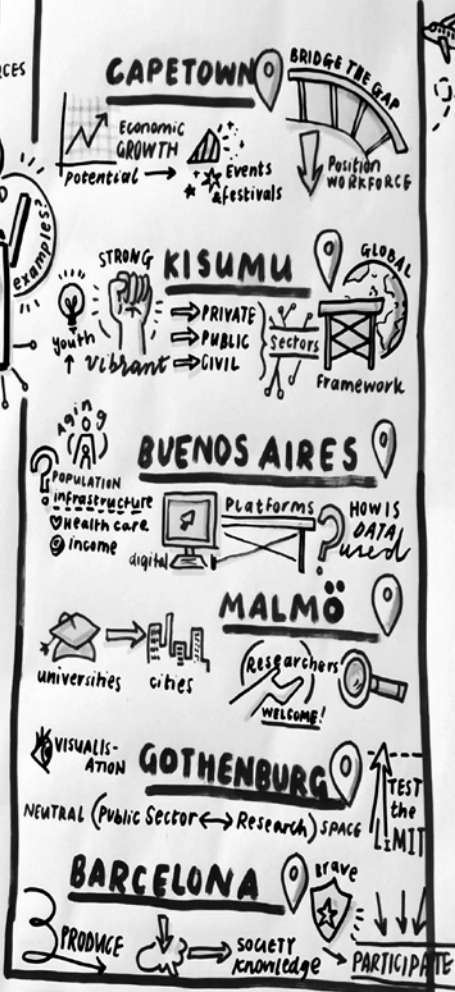 RCES
CAPETOWN
BRIDGE THE GAP
Economic
GROWTH
potential
Events
& festivals
Position
WORKFORCE
examples?
STRONG
KISUMU
GLOBAL
Youth
Vibrant
PRIVATE
PUBLIC
CIVIL
Sectors
Framework
Aging
BUENOS AIRES
POPULATION
infrastructure
Health care
income
digital
Platforms
HOW IS
DATA
used
MALMÖ
universities
cities
Researchers
WELCOME!
VISUALIS-
ATION
GOTHENBURG
TEST
the
LIMIT
NEUTRAL (Public Sector ↔ Research) SPACE
BARCELONA
Brave
PRODUCE
SOCIETY
Knowledge
PARTICIPATE